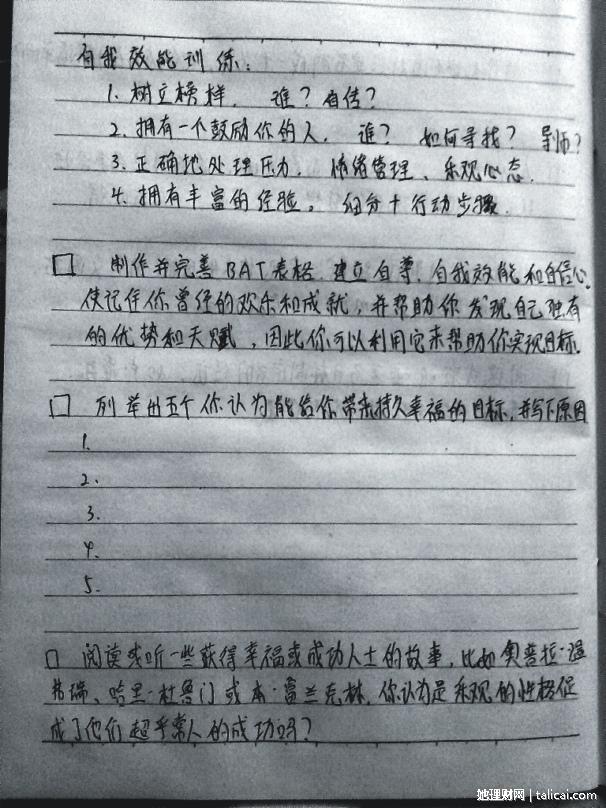 自我效能训练：
1. 树立榜样. 谁？自传？
2. 拥有一个鼓励你的人. 谁？ 如何寻找？ 导师？
3. 正确地处理压力. 情绪管理、乐观心态.
4. 拥有丰富的经验。 细分＋行动步骤.
□ 制作并完善BAT表格. 建立自尊、自我效能和自信心。
使记住你曾经的欢乐和成就，并帮助你发现自己独有
的优势和天赋，因此你可以利用它来帮助你实现目标.
□ 列举出五个你认为能给你带来持久幸福的目标，并写下原因
1.
2.
3.
4.
5.
□ 阅读或听一些获得幸福或成功人士的故事，比如奥普拉·温
弗瑞、哈里·杜鲁门或本·富兰克林. 你认为是乐观的性格促
成了他们超乎常人的成功吗？
她理财网 | talicai.com